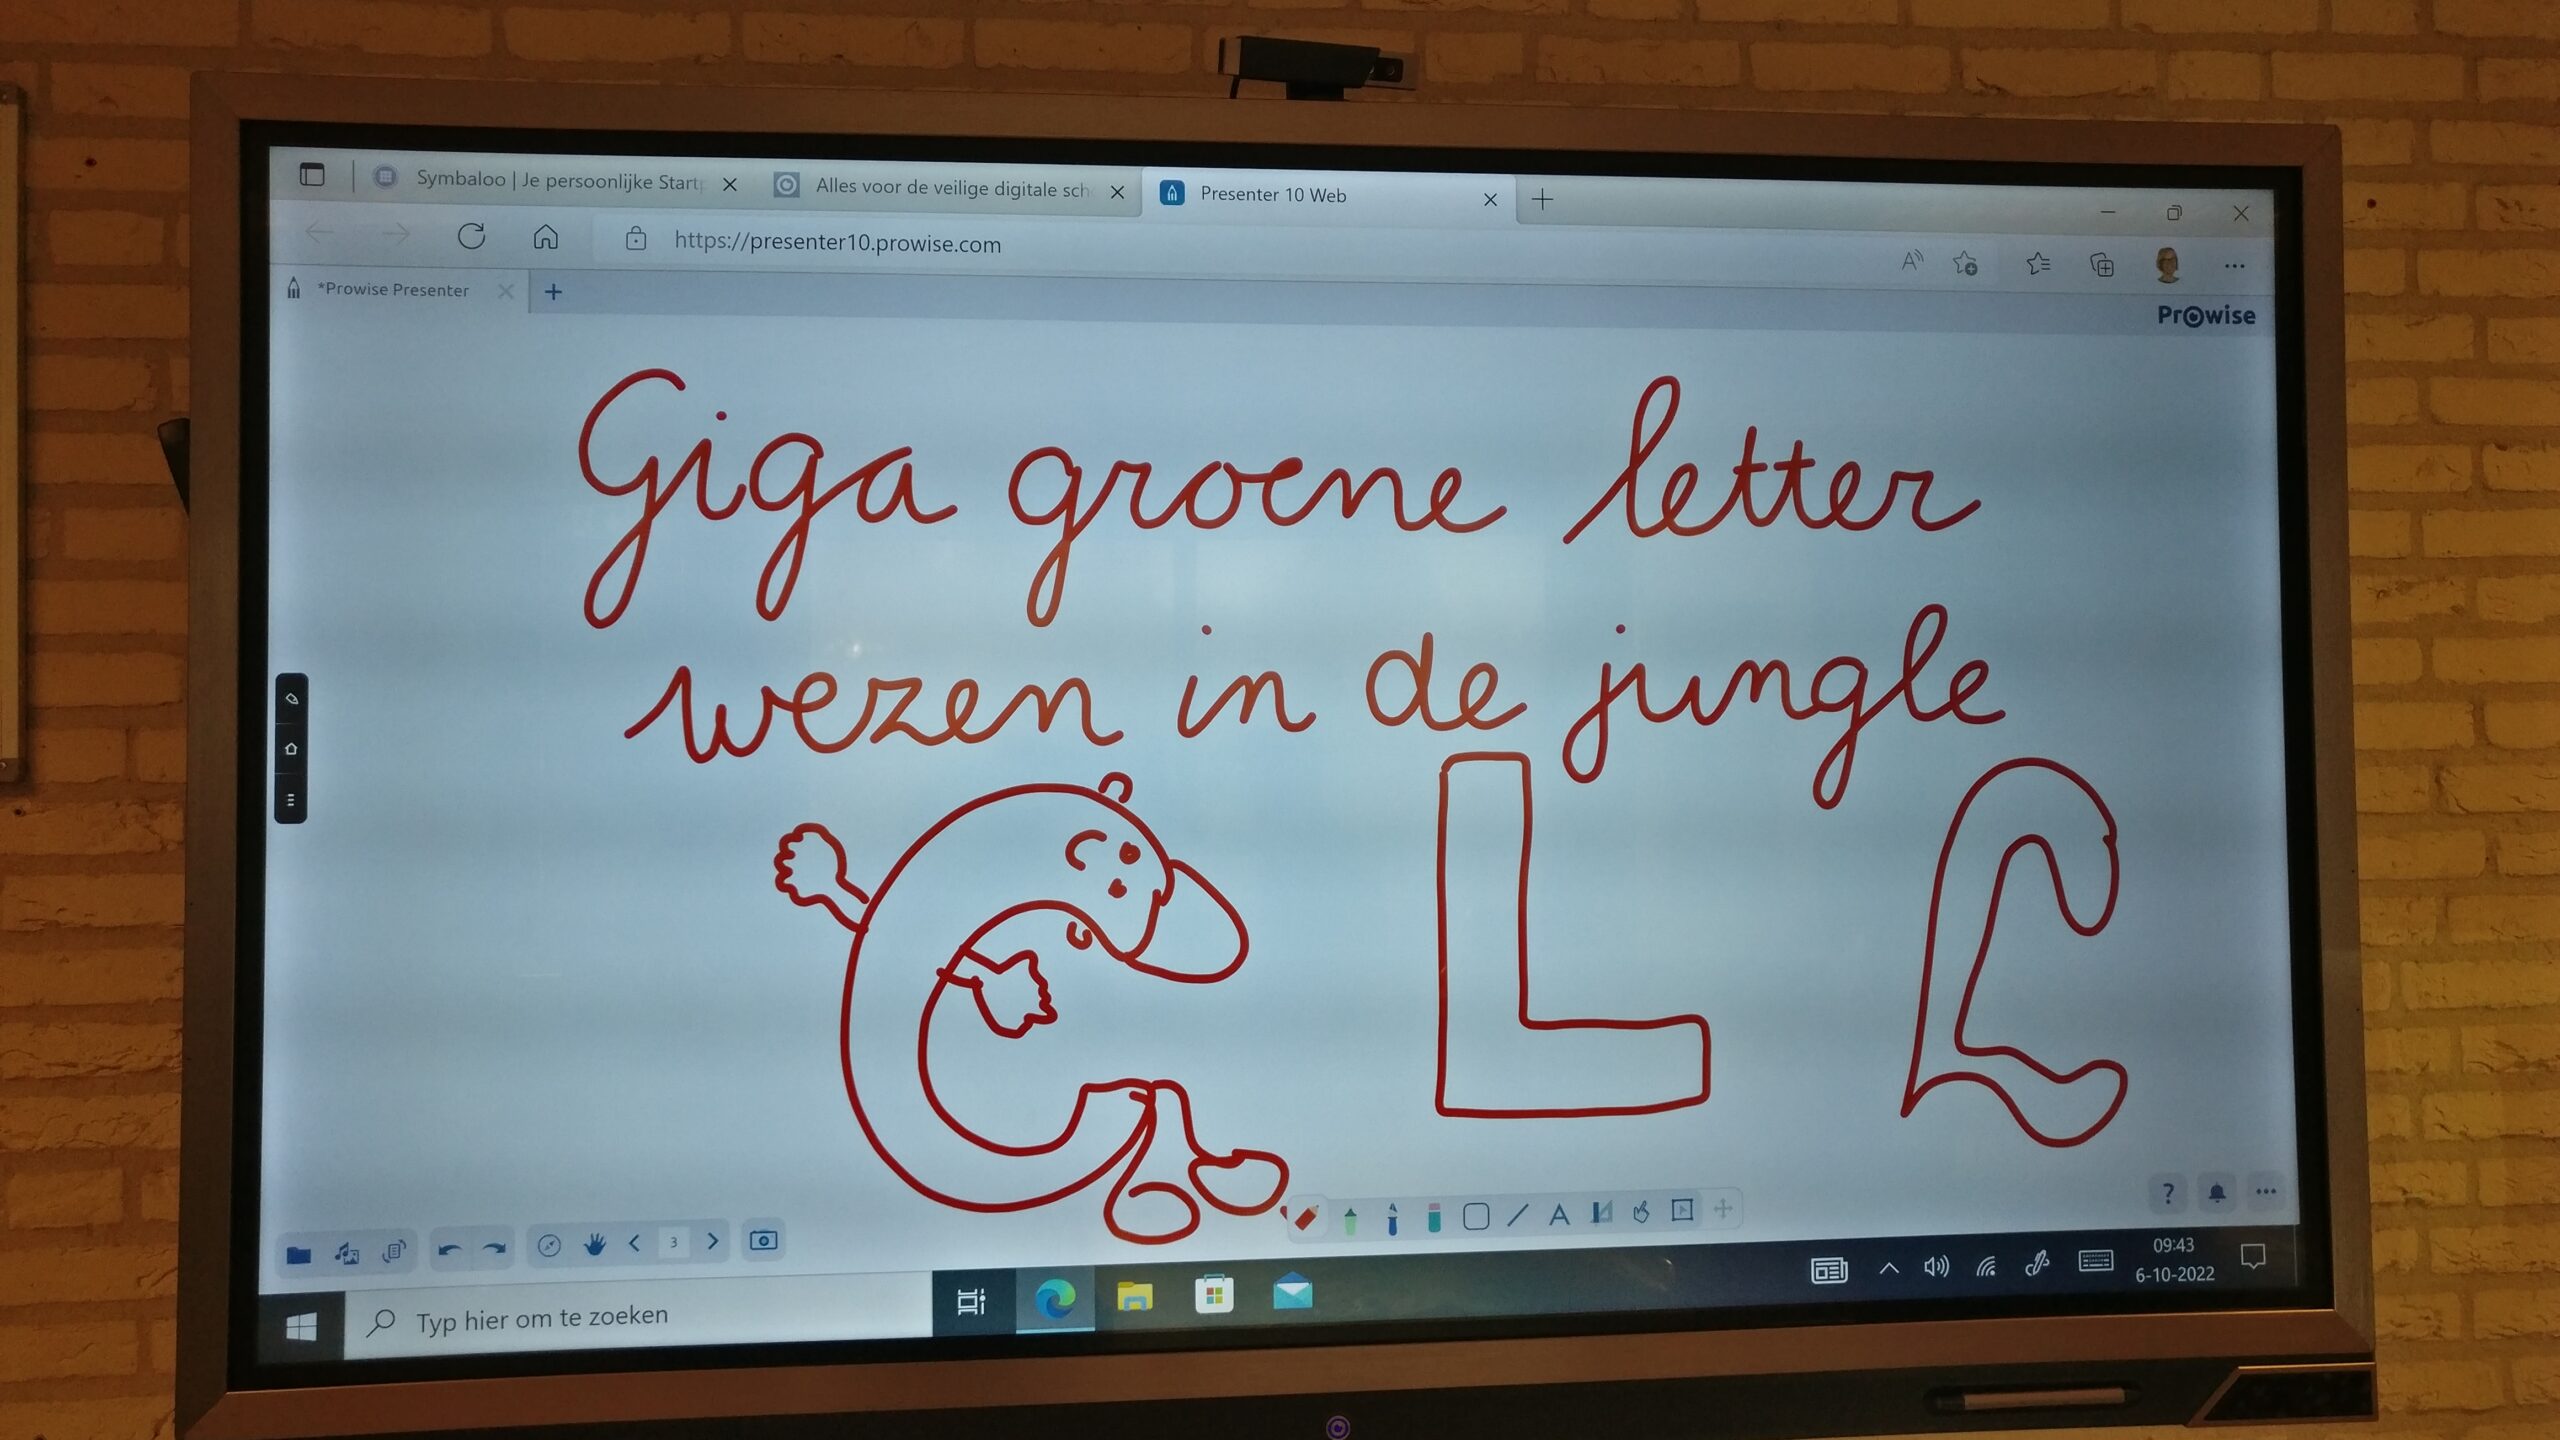 Symbaloo | Je persoonlijke Startp
Alles voor de veilige digitale sch
Presenter 10 Web
https://presenter10.prowise.com
*Prowise Presenter
Prowise
Giga groene letter
wezen in de jungle
C L L
3
09:43
6-10-2022
Typ hier om te zoeken